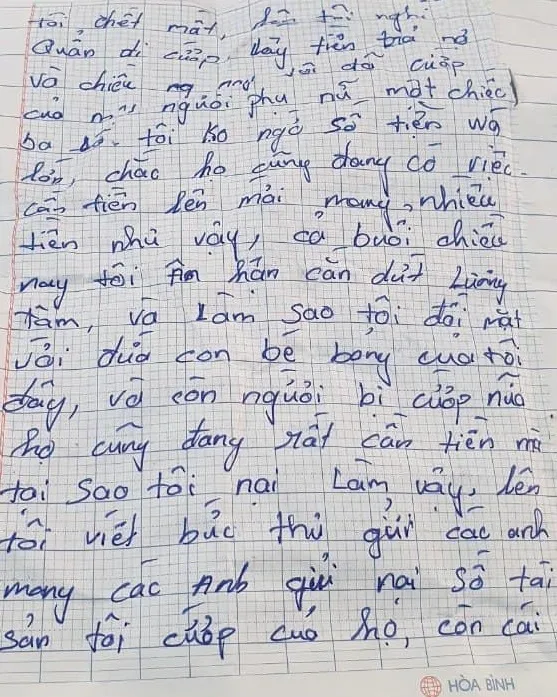 tôi chết mất, lên tôi nghĩ
Quẩn đi cướp, lấy tiền trả nợ
và chiều nay tôi đã cướp
của một người phụ nữ một chiếc
ba lô. tôi ko ngờ số tiền wá
lớn, chắc họ cũng đang có việc
cần tiền lên mới mang, nhiều
tiền như vậy, cả buổi chiều
nay tôi Ân hận cắn dứt Lương
tâm, và Làm sao tôi đối mặt
với đứa con bé bỏng của tôi
đây, và còn người bị cướp nữa
họ cũng đang rất cần tiền mà
tại sao tôi nại Làm vậy, lên
tôi viết bức thư gửi các anh
mong các Anh gửi nại số tài
sản tôi cướp của họ, còn cái
HÒA BÌNH